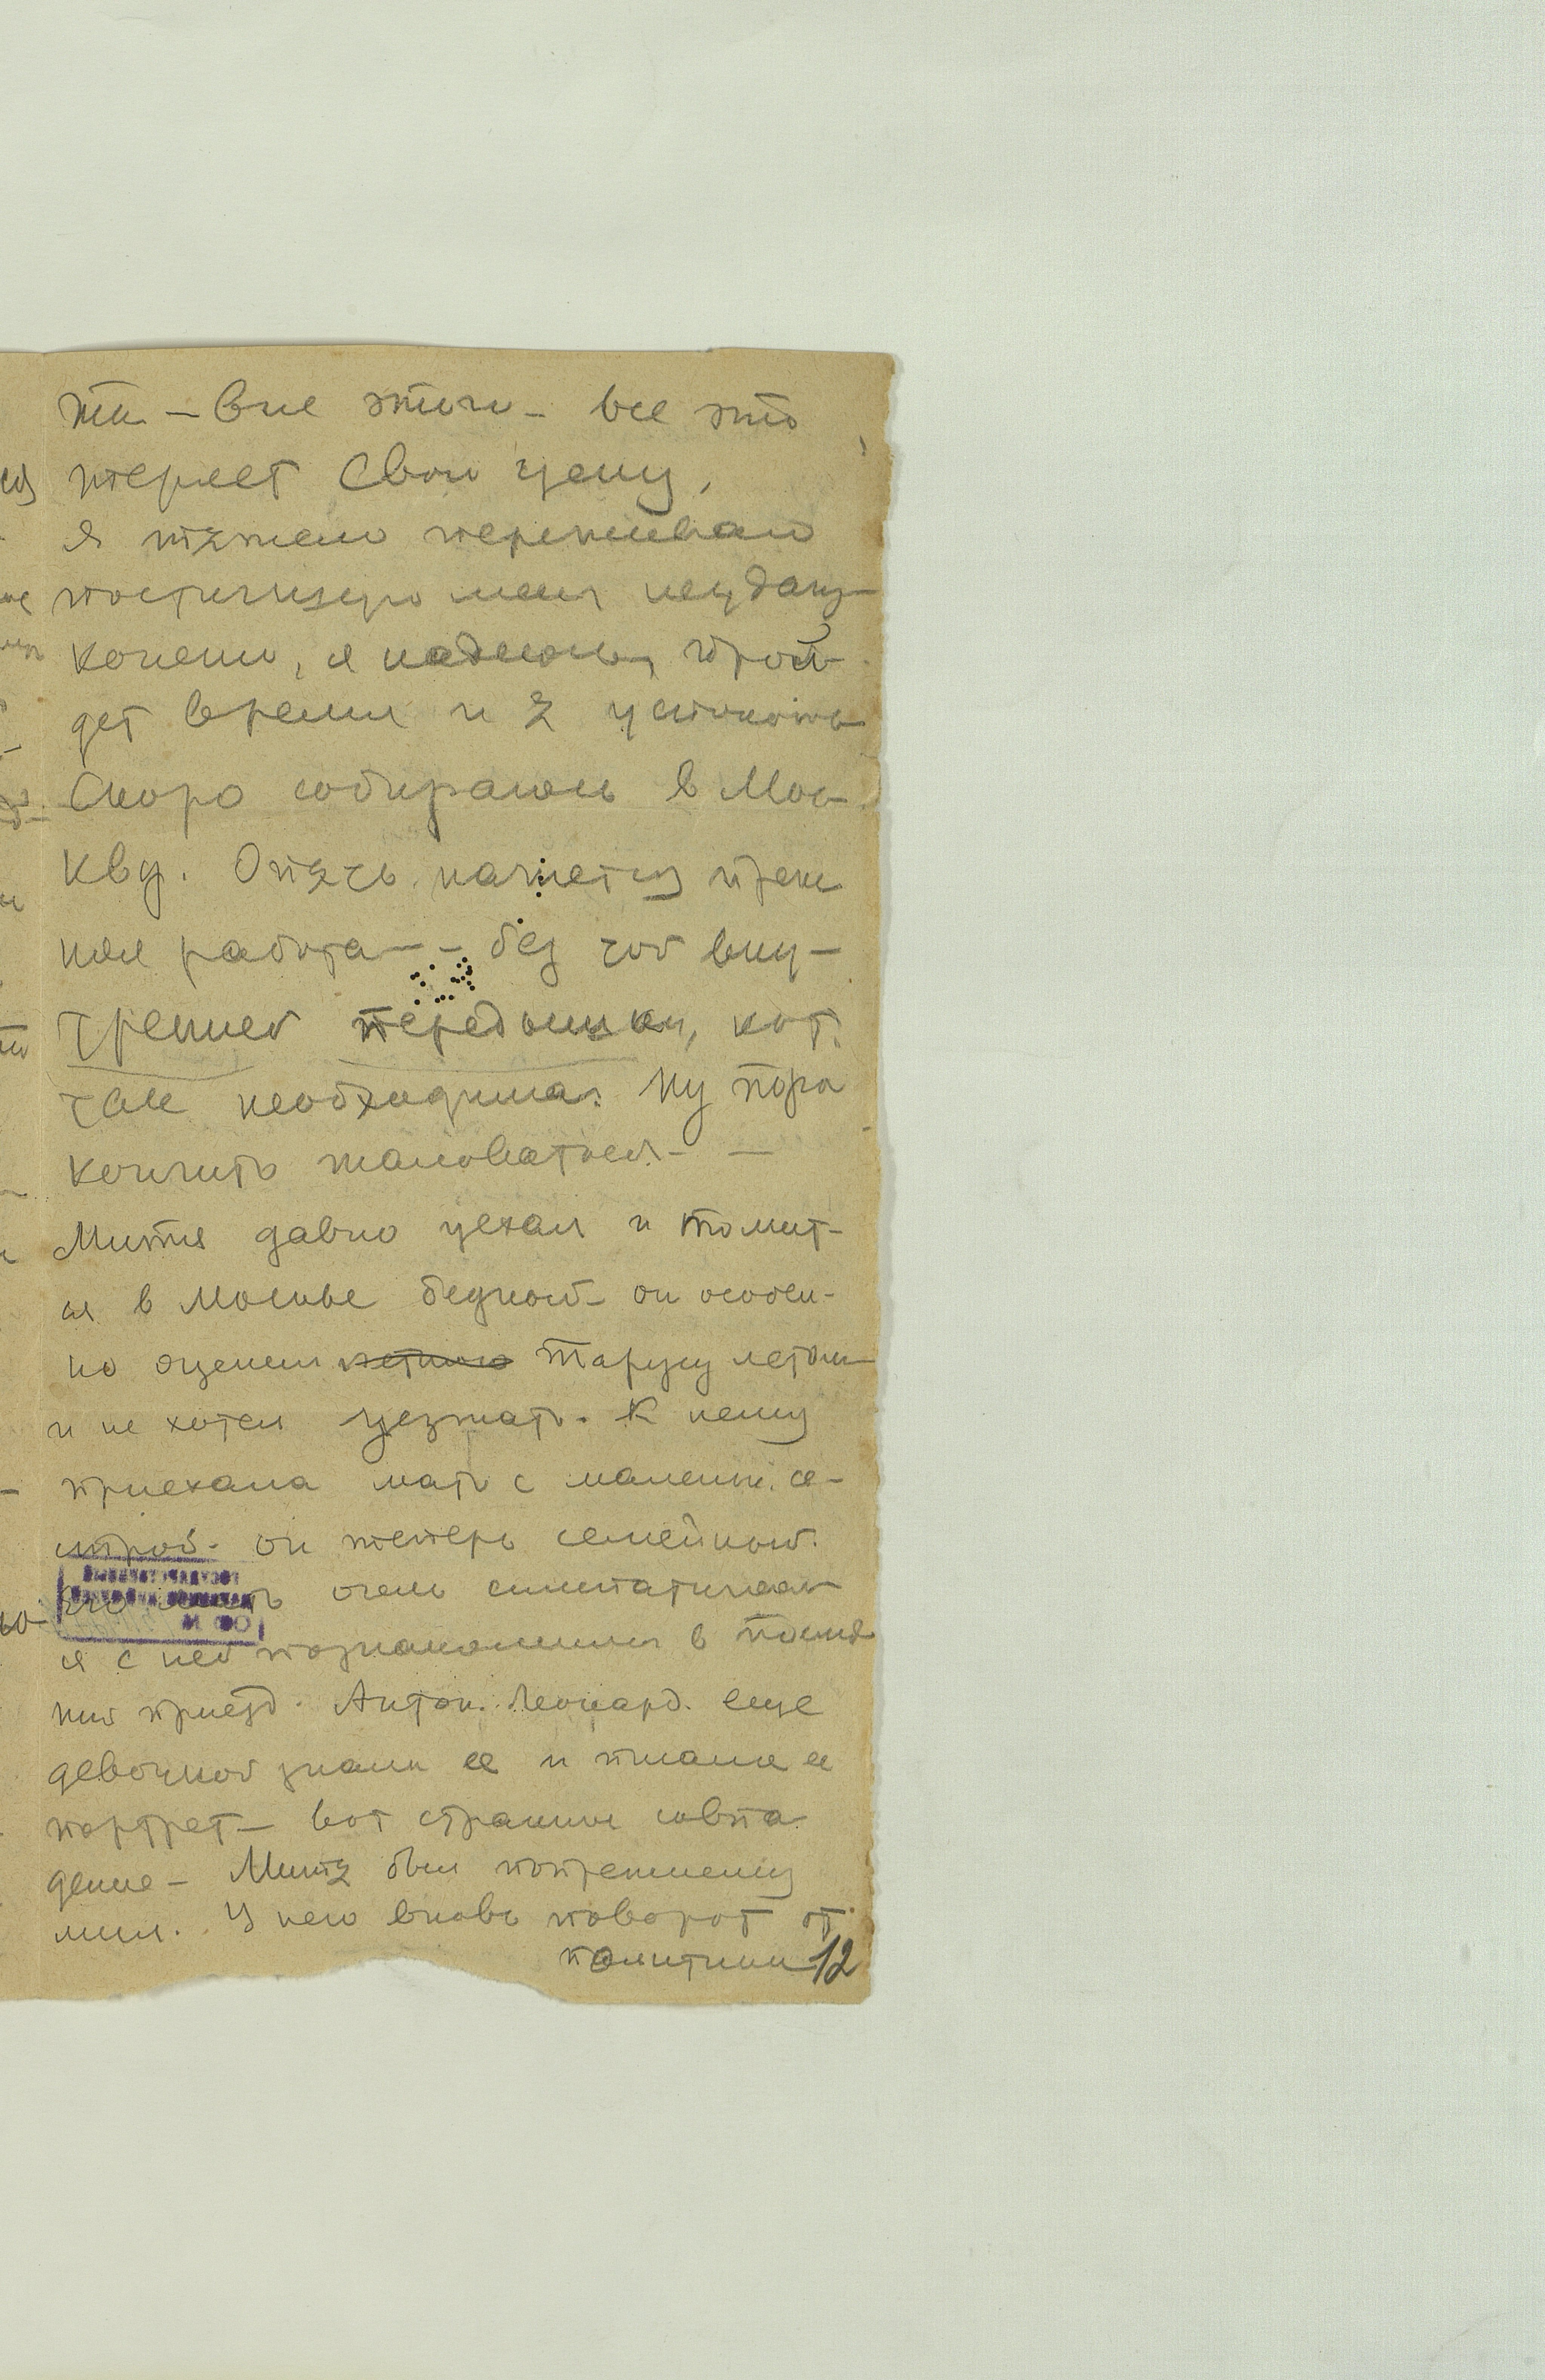 ти – вне этого – все это
теряет свою цену,
я тяжело переживаю
постигшую меня неудачу –
конечно, я надеюсь, прой-
дет время и я успокоюсь
Скоро собираюсь в Мос-
кву. Опять начнется преж
няя работа – – без той вну-
тренней передышки, кот.
так необходима. Ну пора
кончить жаловаться – –
Митя давно уехал и томит-
ся в Москве бедной – он особен-
но оценил Тарусу летом
и не хотел уезжать. К нему
приехала мать с маленьк. се-
строй – он теперь семейной.
Его мать очень симпатичная
я с ней познакомился в послед
ний приезд. Антон. Леонард. еще
девочкой знали ее и писали ее
портрет – вот странное совпа
дение – Митя был попрежнему
мил. У него вновь поворот от
политики 12